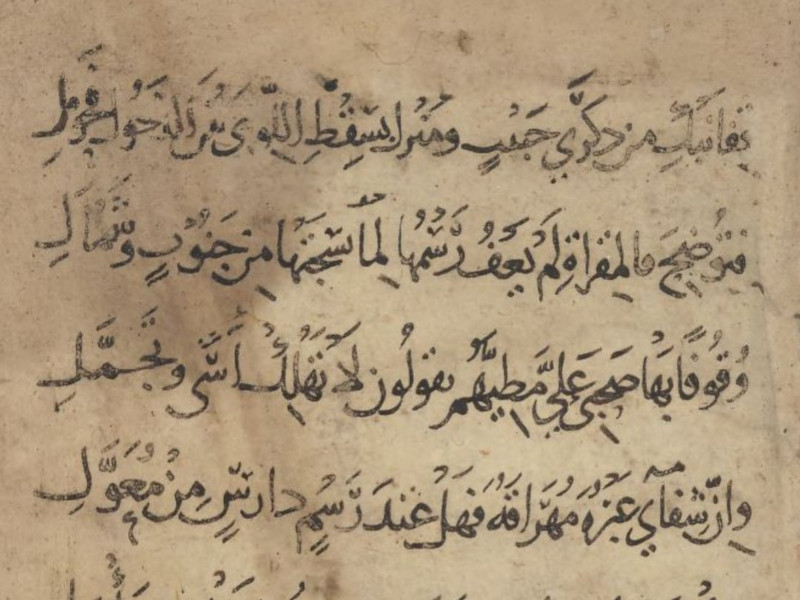 قفا نبك من ذكرى حبيب ومنزل بسقط اللوى بين الدخول فحومل
فتوضح فالمقراة لم يعف رسمها لما نسجتها من جنوب وشمأل
وقوفا بها صحبي علي مطيهم يقولون لا تهلك أسى وتجمل
وإن شفائي عبرة مهراقة فهل عند رسم دارس من معول